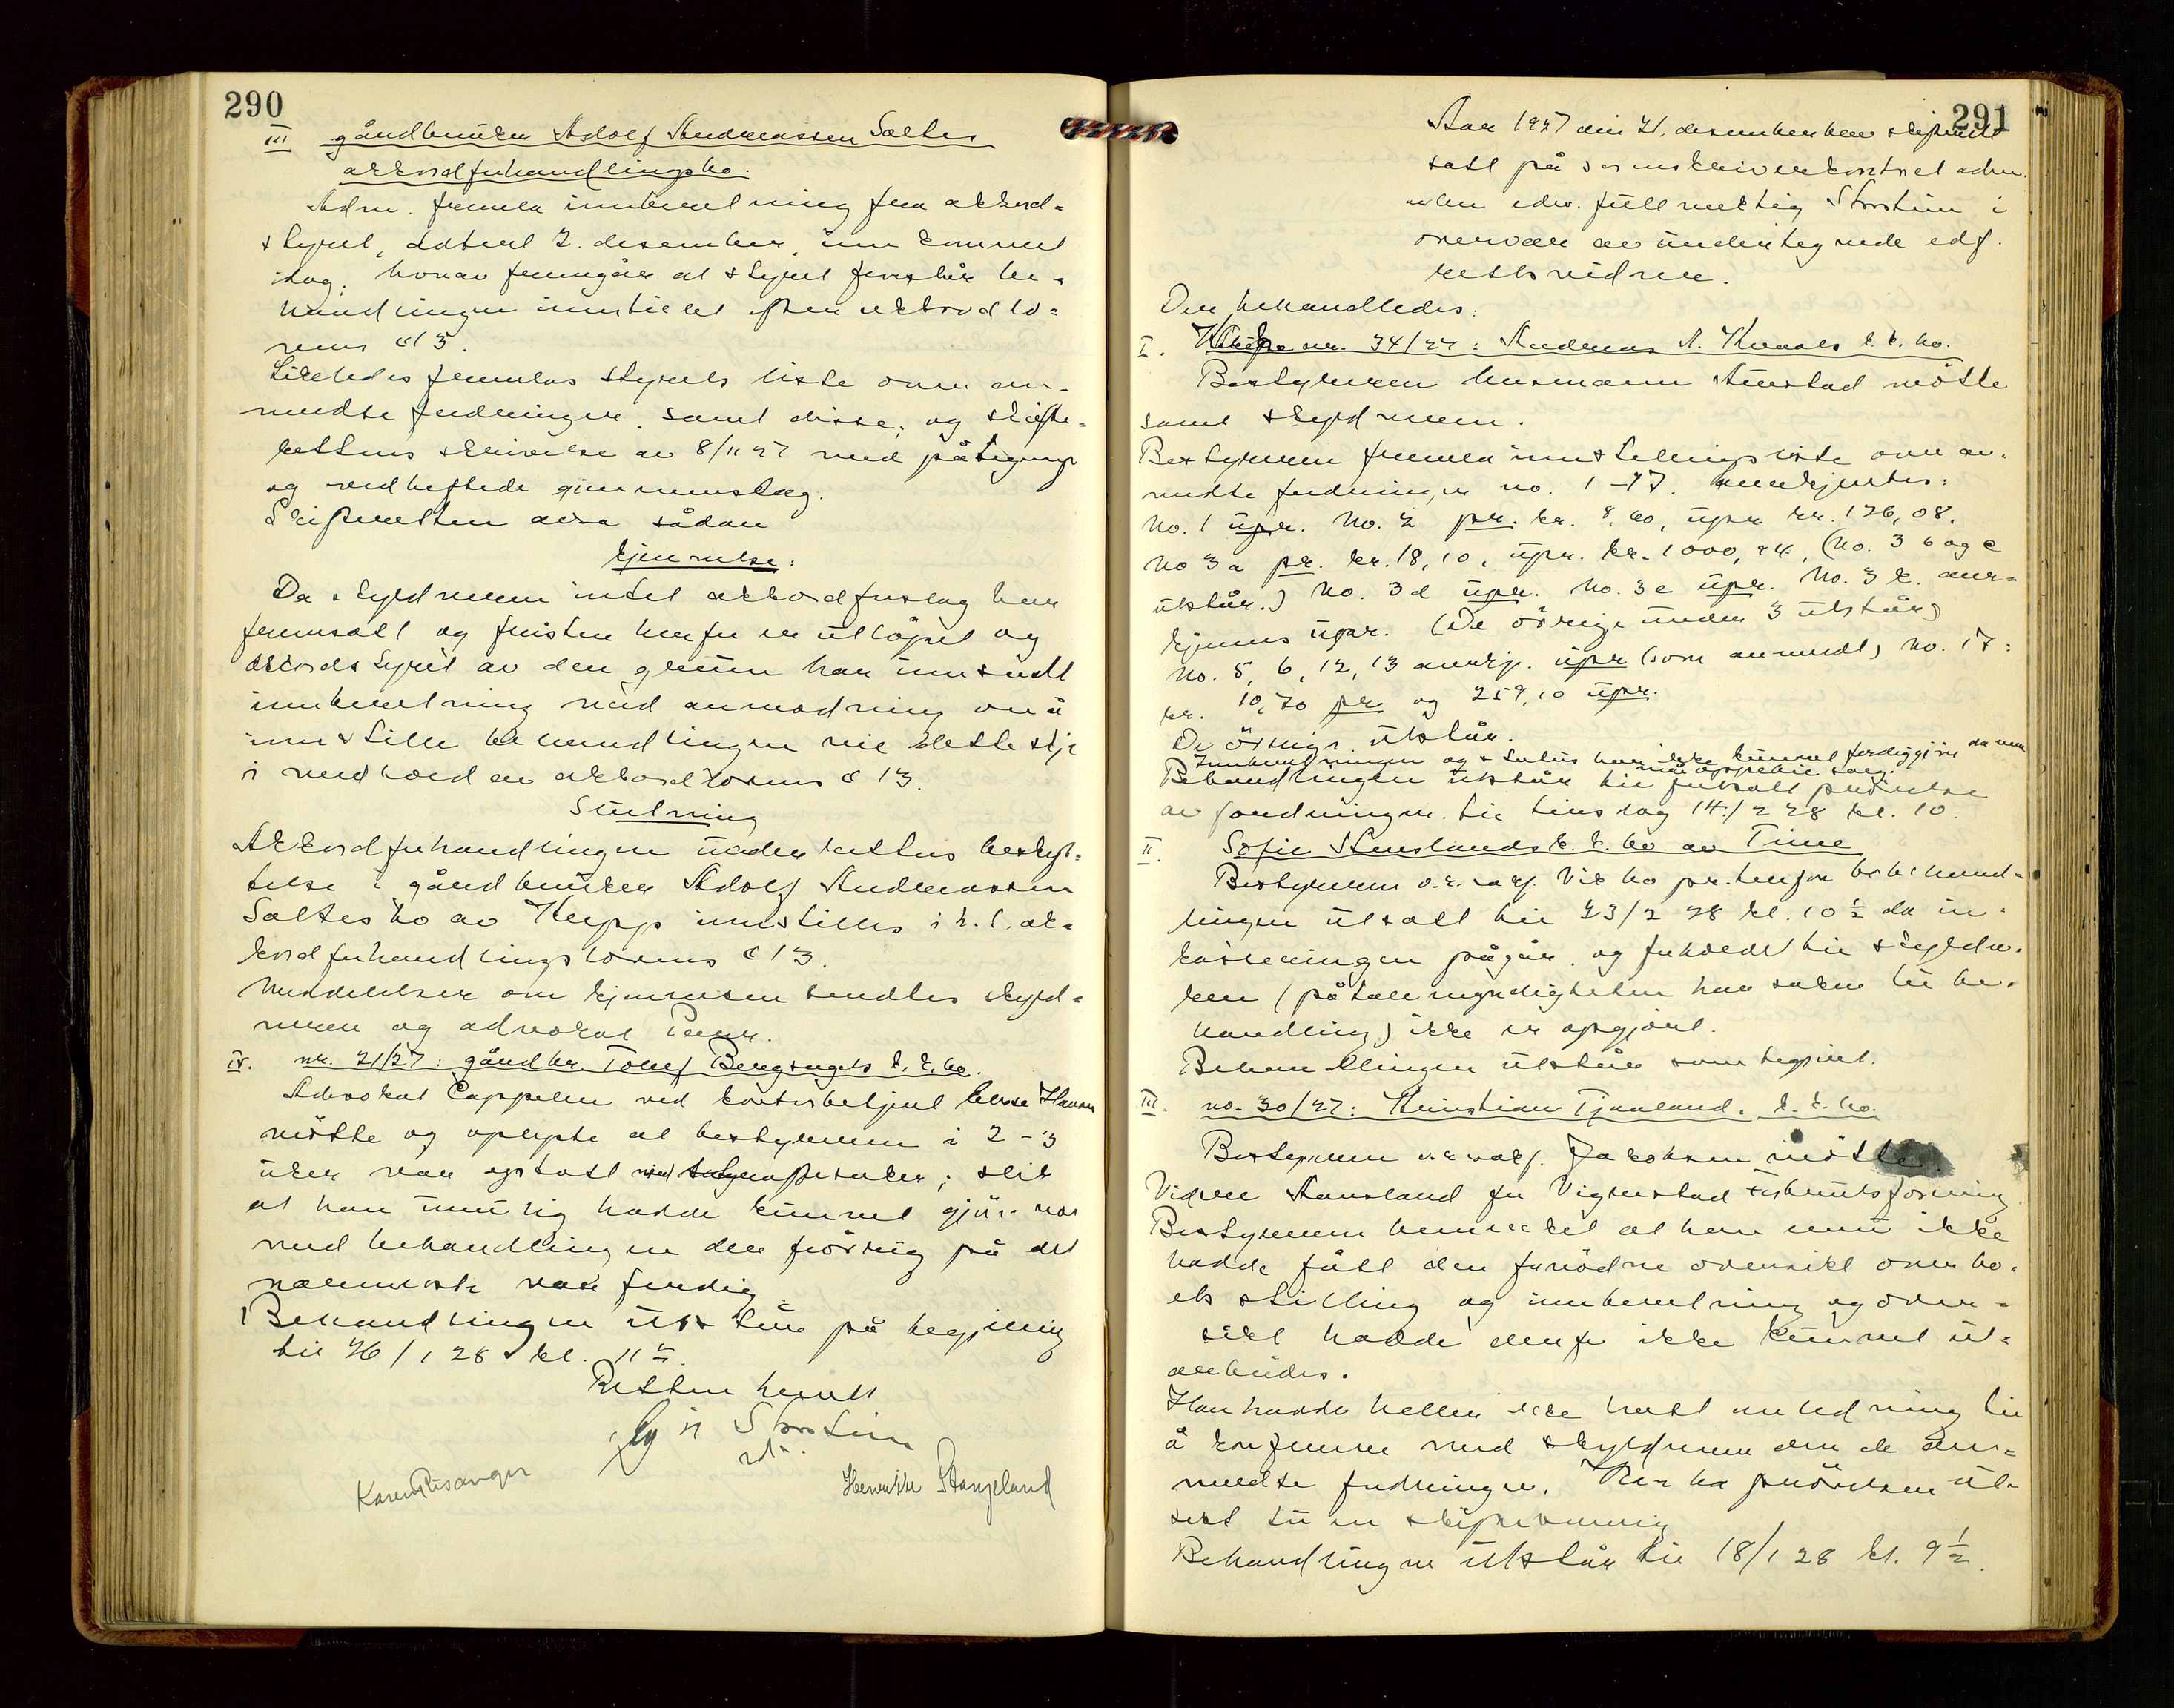 290
III gårdbruker Adolf Andreassen Saltes
akkordforhandlingsbo.
Adm. fremla innberetning fra akkord-
styret, datert 2. desember, inn kommet
idag, hvorav fremgår at styret foreslår be-
handlingen innstillet efter akkordlo-
vens § 13.
Likeledes fremlas styrets liste over an-
meldte fordringer, samt disse, og skifte-
rettens skrivelse av 8/11 27 med påtegning
og vedheftede gjennemslag.
Skifteretten avsa sådan
kjennelse:
Da skyldneren intet akkordforslag har
fremsatt og fristen herfor er utløpet og
akkordstyret av den grunn har innsendt
innberetning med anmodning om å
innstille behandlingen vil dette skje
i medhold av akkordlovens § 13.
Slutning
Akkordforhandlingen under rettens besty-
relse i gårdbruker Adolf Andreassen
Saltes bo av Klepp innstilles i h. t. ak-
kordforhandlingslovens § 13.
Meddelelse om kjennelsen sendtes skyld-
neren og advokat
IV. nr. 21/27: gårdbr. Tollef Bergsagels k. k. bo.
Advokat Cappelen ved kontorbetjent Hansen
møtte og oplyste at bestyreren i 2-3
uker var optatt med saker; slik
at han umulig hadde kunnet gjøre noe
med behandlingen den forøvrig på det
nærmeste var ferdig.
Behandlingen utstår på begjæring
til 26/1 28 kl. 11 ½.
Retten hevet
Storstein
Karen Risanger Henrikke Stangeland
291
Aar 1927 den 21. desember blev skifterett
satt på sorenskriverkontoret adm.
av den edsv. fullmektig Storstein i
overvær av undertegnede edf.
rettsvidner.
Der behandledes:
I. Klepp nr. 34/27: Andreas A. k. k. bo.
Bestyreren lensmann Austad møtte
samt skyldneren.
Bestyreren fremla innstillingsliste over an-
meldte fordringer no. 1-17. Anerkjentes:
No. 1 upr. No. 2 pr. kr. 8,60, upr. kr. 126,08.
No 3a pr. kr. 18,10, upr. kr. 1000,24. (No. 3 b og c
utstår.) No. 3d upr. No. 3e upr. No. 3 k. aner-
kjennes upr. (De øvrige under 3 utstår)
No. 5, 6, 12, 13 anerkj. upr (som anmeldt) no. 17:
kr. 10,70 pr. og 259,10 upr.
De øvrige utstår.
Innberetningen og status har ikke kunnet ferdiggjøres da man
må oppebie salg.
Behandlingen utstår til fortsatt prøvelse
av fordringer til tirsdag 14/2 28 kl. 10.
II. Sofie k. k. bo av Time
Bestyreren o.r.sakf. Vik ba pr. telefon bobehand-
lingen utsatt til 23/2 28 kl. 10 ½ da in-
kasseringen pågår, og forholdet til skyldne-
ren (påtalemyndigheten har saken til be-
handling) ikke er opgjort.
Behandlingen utstår som begjært.
III. no. 30/27: Kristian Tjaaland. k. k. bo.
Bestyreren o.r.sakf. Jakobsen møtte.
Videre Aansland for Vigrestad
Bestyreren bemerket at han ennu ikke
hadde fått den fornødne oversikt over bo-
ets stilling og innberetning og over-
sikt hadde derfor ikke kunnet ut-
arbeides.
Han hadde heller ikke hatt anledning til
å konferere med skyldneren om de an-
meldte fordringer. Han ba prøvelsen ut-
satt til en skiftesamling
Behandlingen utstår til 18/1 28 kl. 9 ½.